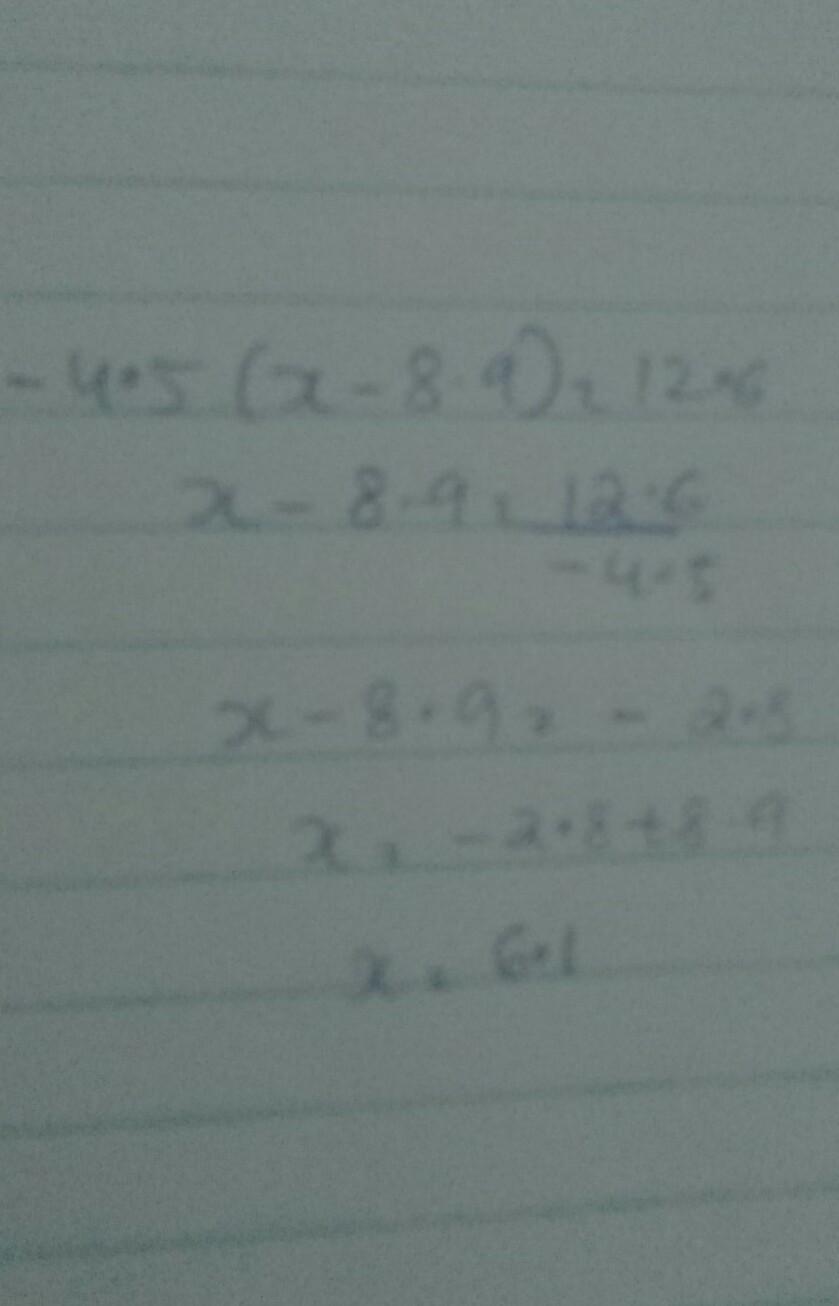 -4.5 (x - 8.9) = 12.6
x - 8.9 = 12.6
-4.5
x - 8.9 = - 2.8
x = -2.8 + 8.9
x = 6.1